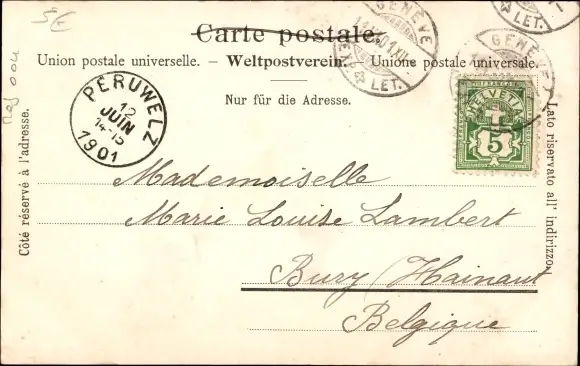 5 €
Carte postale.
Union postale universelle. – Weltpostverein. – Unione postale universale.
Nur für die Adresse.
Côté réservé à l'adresse.
Lato riservato all' indirizzo.
PERUWELZ
12
JUIN
14-15
1901
GENÈVE
LET.
GENÈVE
LET.
GENÈVE
HELVETIA
5
Mademoiselle
Marie Louise Lambert
Bury (Hainaut
Belgique